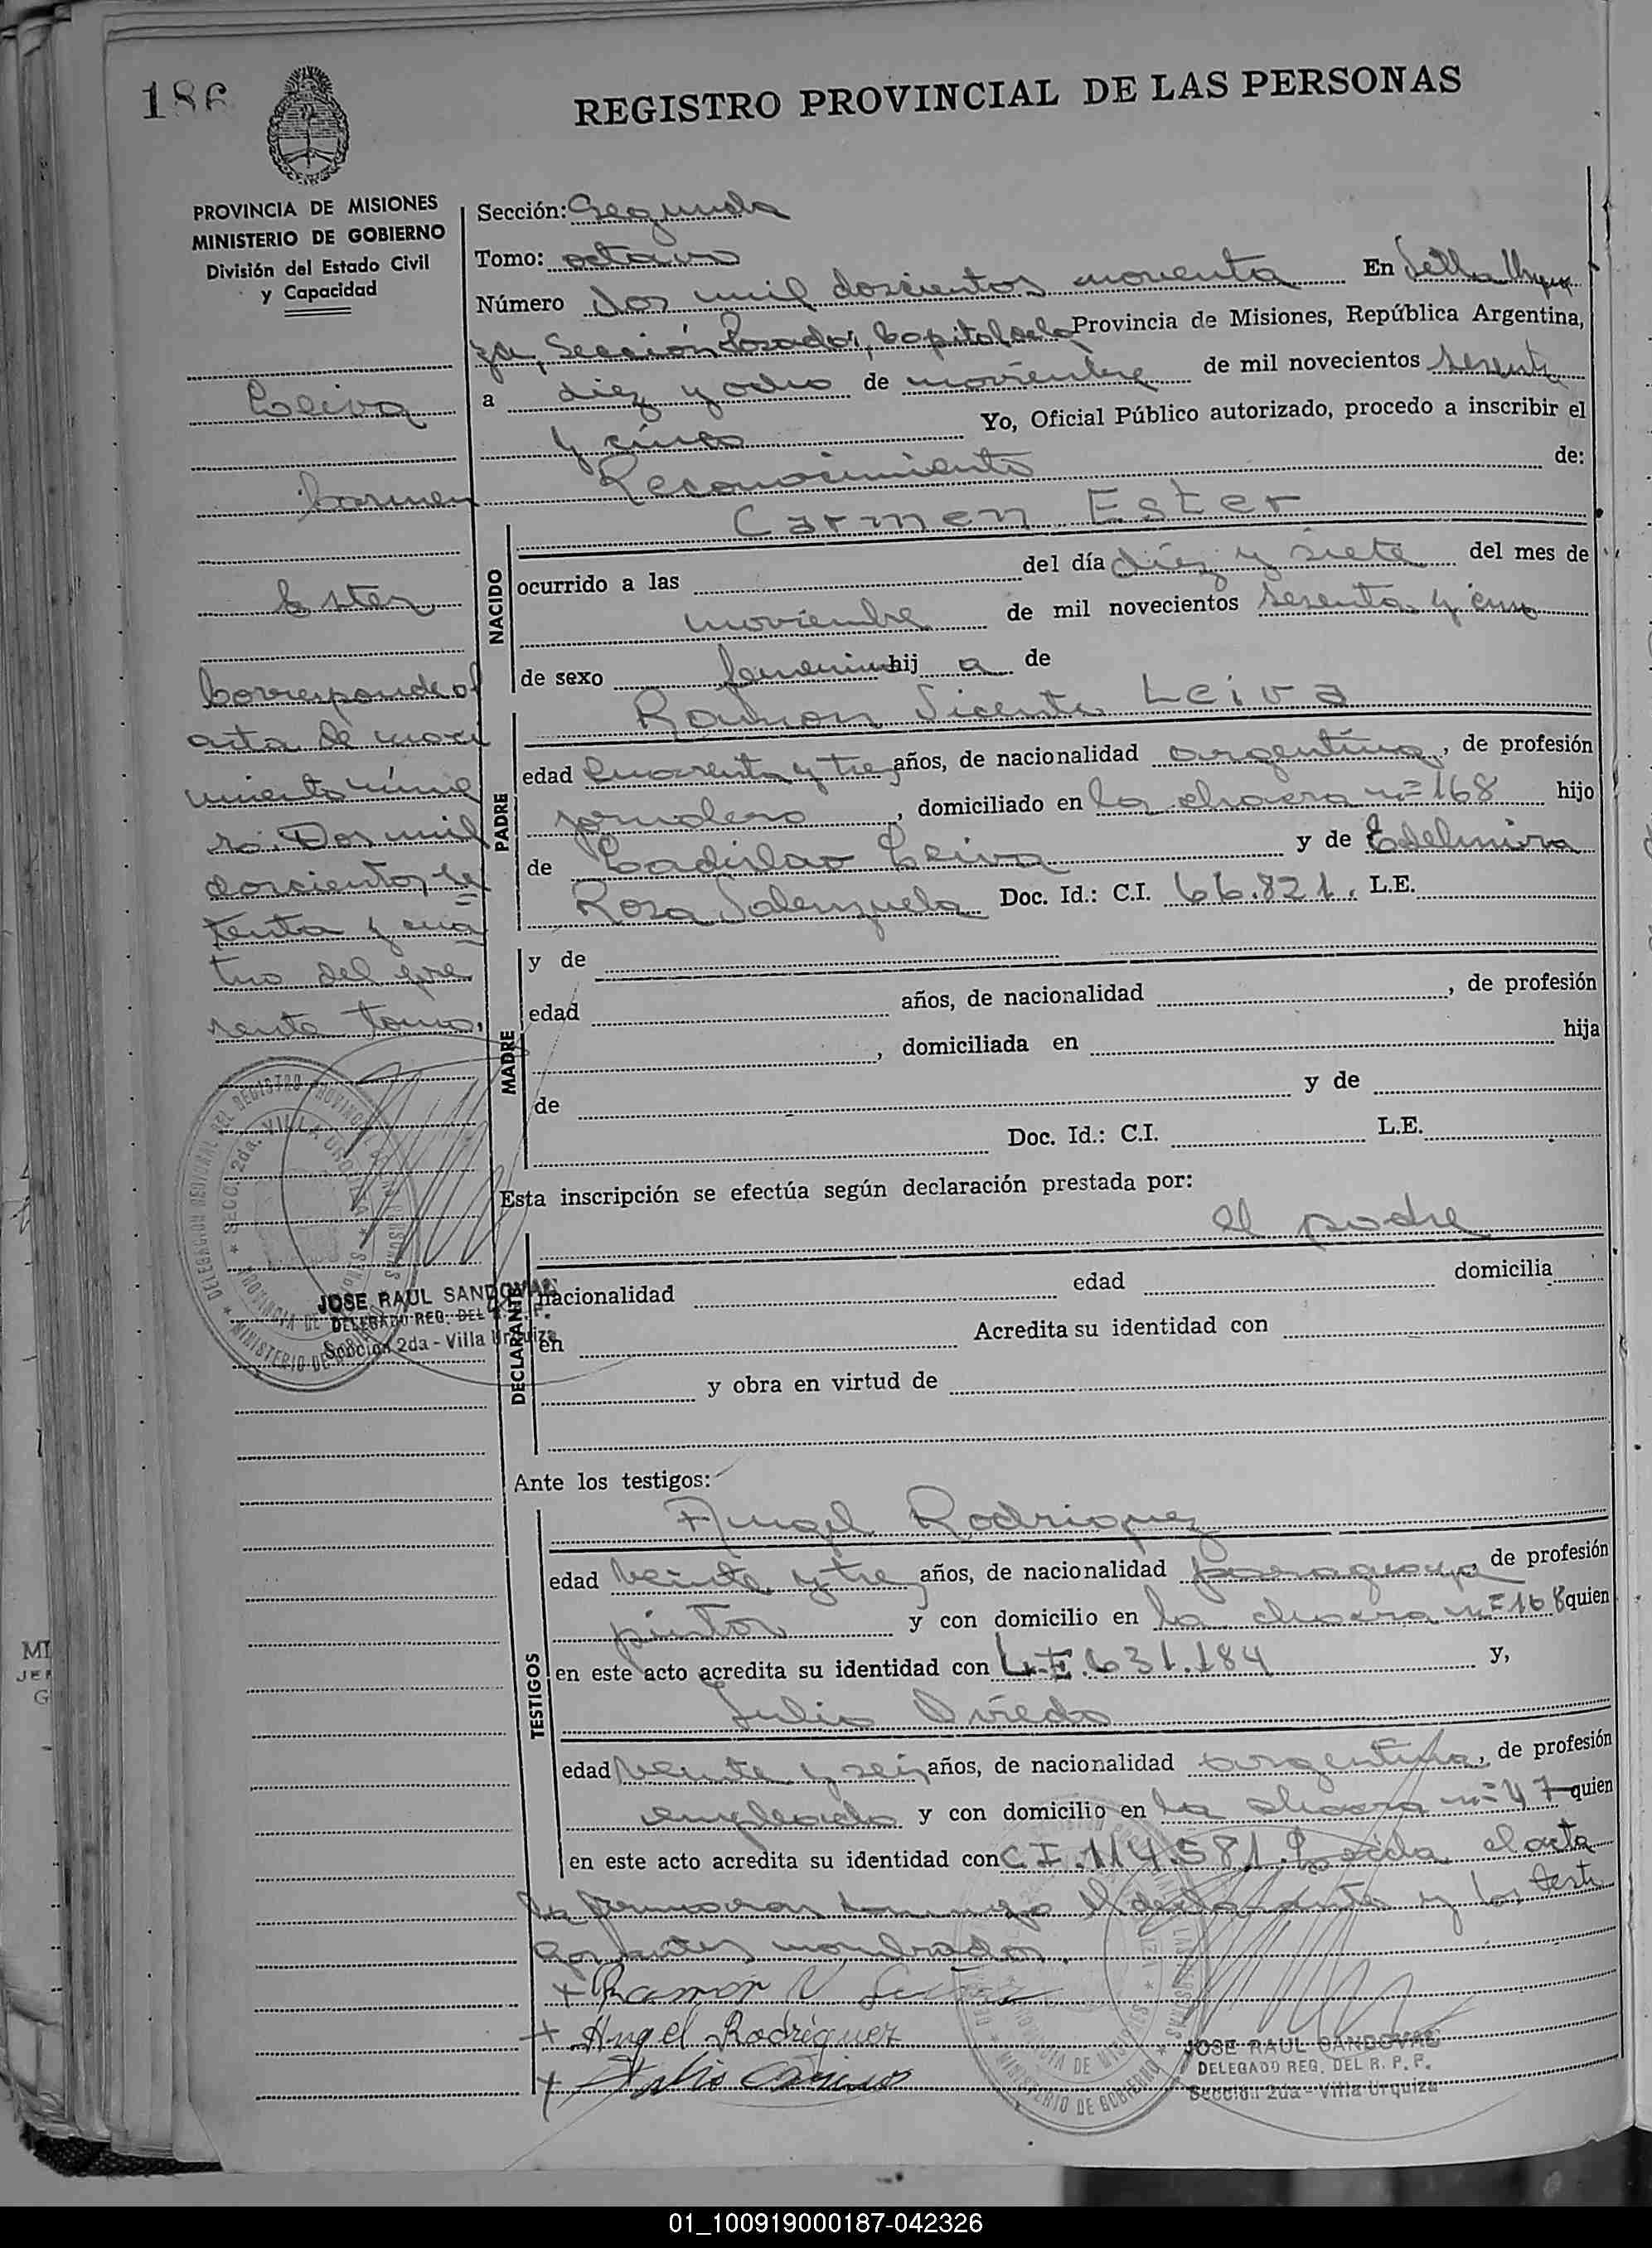 186
REGISTRO PROVINCIAL DE LAS PERSONAS
PROVINCIA DE MISIONES
MINISTERIO DE GOBIERNO
División del Estado Civil
y Capacidad
Leiva
Carmen
Ester
Corresponde al
acta de naci
miento núme
ro: Dos mil
doscientos se
tenta y cua
tro del pre
sente tomo.
JOSE RAUL SANDOVAL
DELEGADO REG. DEL R. P. P.
Sección 2da - Villa Urquiza
Sección: Segunda
Tomo: octavo
Número Dos mil doscientos noventa En Villa Urqui
za, Sección Posadas, Capital de la Provincia de Misiones, República Argentina,
a diez y ocho de noviembre de mil novecientos sesenta
y cinco Yo, Oficial Público autorizado, procedo a inscribir el
Reconocimiento de:
Carmen Ester
NACIDO
ocurrido a las del día diez y siete del mes de
noviembre de mil novecientos sesenta y cinco
de sexo femenino hij a de
Ramon Vicente Leiva
PADRE
edad cuarenta y tres años, de nacionalidad argentina, de profesión
jornalero, domiciliado en la chacra nº 168 hijo
de Ladislao Leiva y de Edelmira
Rosa Valenzuela Doc. Id.: C.I. 66.821. L.E.
MADRE
y de
edad años, de nacionalidad , de profesión
, domiciliada en hija
de y de
Doc. Id.: C.I. L.E.
Esta inscripción se efectúa según declaración prestada por:
el padre
DECLARANTE
nacionalidad edad domicilia
en Acredita su identidad con
y obra en virtud de
Ante los testigos:
Angel Rodriguez
TESTIGOS
edad veinte y tres años, de nacionalidad paraguaya de profesión
pintor y con domicilio en la chacra nº 168 quien
en este acto acredita su identidad con L.E. 631.184 y,
Julio Oviedo
edad veinte y seis años, de nacionalidad argentina, de profesión
empleado y con domicilio en la chacra nº 47 quien
en este acto acredita su identidad con C.I. 114.581. Leída el acta
la firmaron conmigo el declarante y los testi
gos antes nombrados.
+ Ramón V. Leiva
+ Angel Rodríguez
+ Julio
JOSE RAUL SANDOVAL
DELEGADO REG. DEL R. P. P.
Sección 2da - Villa Urquiza
01_100919000187-042326